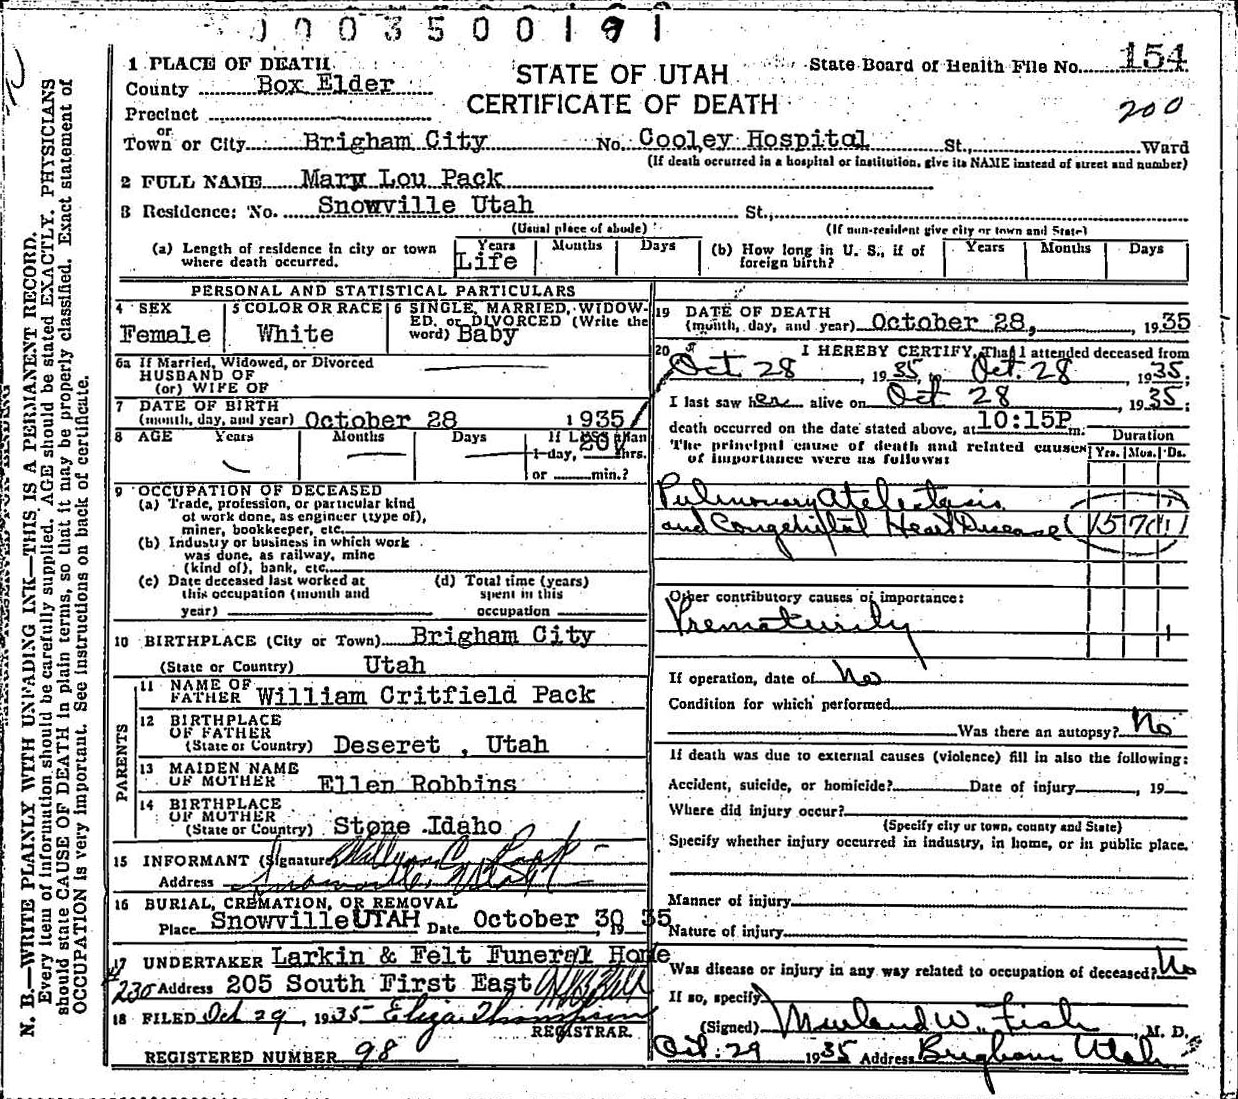 0003500191
1 PLACE OF DEATH
STATE OF UTAH
CERTIFICATE OF DEATH
State Board of Health File No. 154
200
County Box Elder
Precinct
or
Town or City Brigham City No. Cooley Hospital St., Ward
(If death occurred in a hospital or institution, give its NAME instead of street and number)
2 FULL NAME Mary Lou Pack
3 Residence: No. Snowville Utah St.,
(Usual place of abode) (If non-resident give city or town and State)
(a) Length of residence in city or town where death occurred. Years Life Months Days
(b) How long in U. S., if of foreign birth? Years Months Days
PERSONAL AND STATISTICAL PARTICULARS
4 SEX Female
5 COLOR OR RACE White
6 SINGLE, MARRIED, WIDOWED, or DIVORCED (Write the word) Baby
6a If Married, Widowed, or Divorced
HUSBAND OF
(or) WIFE OF
7 DATE OF BIRTH
(month, day, and year) October 28 1935
8 AGE Years Months Days If LESS than
1 day, 20 hrs.
or min.?
9 OCCUPATION OF DECEASED
(a) Trade, profession, or particular kind
of work done, as engineer (type of),
miner, bookkeeper, etc.
(b) Industry or business in which work
was done, as railway, mine
(kind of), bank, etc.
(c) Date deceased last worked at
this occupation (month and
year)
(d) Total time (years)
spent in this
occupation
10 BIRTHPLACE (City or Town) Brigham City
(State or Country) Utah
PARENTS
11 NAME OF
FATHER William Critfield Pack
12 BIRTHPLACE
OF FATHER
(State or Country) Deseret , Utah
13 MAIDEN NAME
OF MOTHER Ellen Robbins
14 BIRTHPLACE
OF MOTHER
(State or Country) Stone Idaho
15 INFORMANT (Signature) William C. Pack
Address Snowville, Utah
16 BURIAL, CREMATION, OR REMOVAL
Place Snowville UTAH Date October 30, 1935
17 UNDERTAKER Larkin & Felt Funeral Home
#230 Address 205 South First East
18 FILED Oct 29, 1935 Eliza Thompson
REGISTRAR.
REGISTERED NUMBER 98
19 DATE OF DEATH
(month, day, and year) October 28, , 1935
20 I HEREBY CERTIFY, That I attended deceased from
Oct 28, 1935, to Oct. 28, 1935;
I last saw her alive on Oct 28, 1935;
death occurred on the date stated above, at 10:15P m.
The principal cause of death and related causes
of importance were as follows:
Duration
Yrs. Mos. Ds.
Pulmonary Atelectasis
and Congenital Heart Disease 157c 1
Other contributory causes of importance:
Prematurity 1
If operation, date of No
Condition for which performed
Was there an autopsy? No
If death was due to external causes (violence) fill in also the following:
Accident, suicide, or homicide? Date of injury , 19
Where did injury occur?
(Specify city or town, county and State)
Specify whether injury occurred in industry, in home, or in public place.
Manner of injury
Nature of injury
Was disease or injury in any way related to occupation of deceased? No
If so, specify
(Signed) Merland W. Fish M. D.
Oct. 29 1935 Address Brigham Utah
N. B.—WRITE PLAINLY WITH UNFADING INK—THIS IS A PERMANENT RECORD.
Every item of information should be carefully supplied. AGE should be stated EXACTLY. PHYSICIANS
should state CAUSE OF DEATH in plain terms, so that it may be properly classified. Exact statement of
OCCUPATION is very important. See instructions on back of certificate.